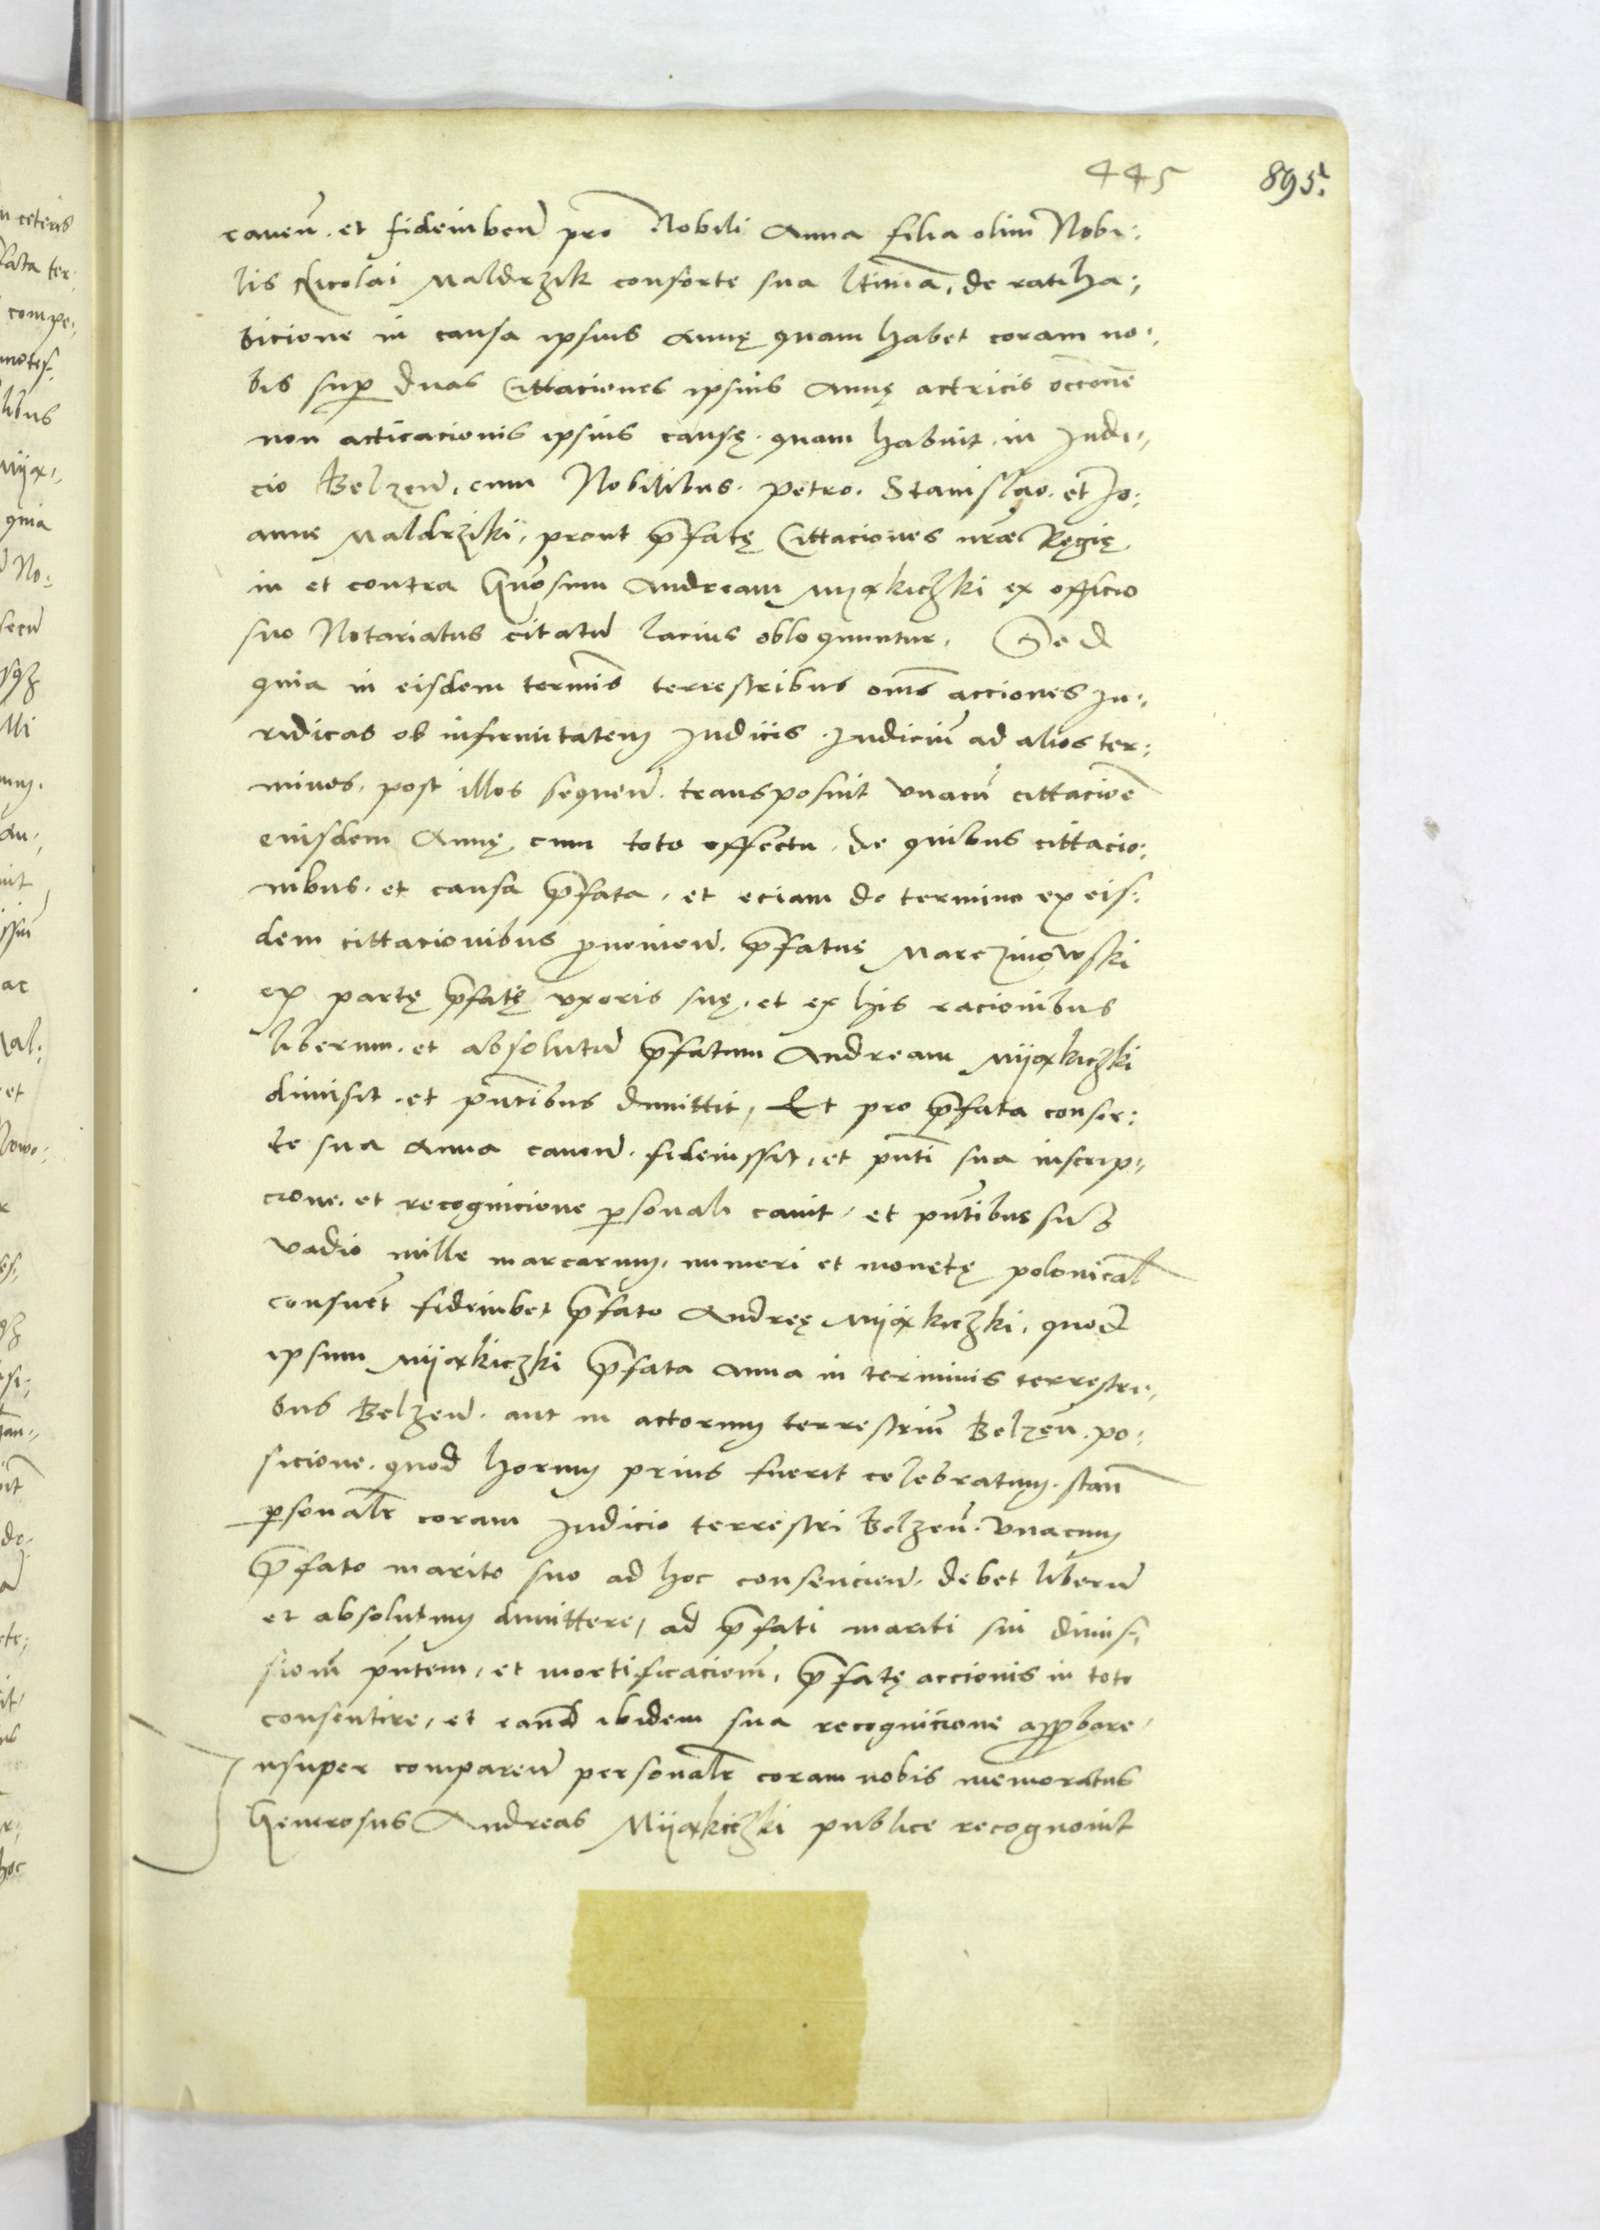 445 895.
caveń. et fideiubeń pro Nobili Anna filia olim Nobi:
lis Nicolai Maldrzik consorte sua ltima, de ratiha:
bicione in causa ipsius Annę quam habet coram no:
bis sup duas Cittaciones ipsius Annę actricis occone
non acticacionis ipsius causę. quam habuit in Judi:
cio Belzeń, cum Nobilibus. Petro. Stanislao. et Jo:
anne Maldrziki, prout pfatę Cittaciones nrae Regię
in et contra Gnosum Andream Mijakiczki ex officio
suo Notariatus citatu lacius obloquuntur. Sed
quia in eisdem termis terrestribus oms acciones Ju:
ridicas ob infirmitatem Judicis. Judiciu ad alios ter:
minos, post illos sequeń. transposuit unacu cittacioe
eiusdem Annę cum toto effectu. de quibus cittacio:
nibus. et causa pfata, et eciam de termino ex eis:
dem cittacionibus pvenień. pfatus Marczinowski
ex partę pfatę uxoris suę. et ex his racionibus
liberum. et absolutu pfatum Andream Mijakiczki
dimisit. et pntibus dimittit, Et pro pfata consor:
te sua Anna caveń. fideiussit, et pnti sua inscrip:
cione. et recognicione psonali cavit, et pntibus sub
vadio mille marcarum, numeri et monetę polonical
consuet fideiubet pfato Andreę Mijakiczki, quod
ipsum Mijakiczki pfata Anna in terminis terrestri:
bus Belzeń. aut in actorum terrestriu Belzeń. po:
sicione. quod horum prius fuerit celebratum. stań
psonalr coram Judicio terrestri Belzeń. unacum
pfato marito suo ad hoc consencień. debet liberu
et absolutum dimittere, ad pfati mariti sui dimis:
siom pntem, et mortificaciom, pfatę accionis in toto
consentire, et eand ibidem sua recognicione approbare.
Insuper compareń personalr coram nobis memoratus
Generosus Andreas Mijakiczki publice recognovit